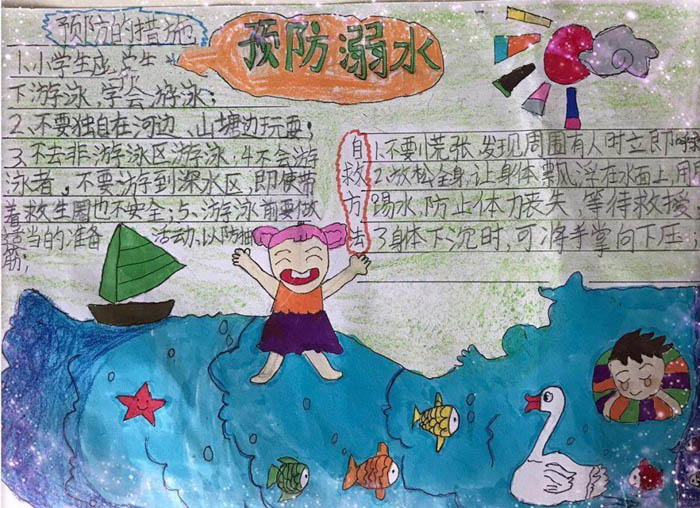 预防溺水
预防的措施
1.小学生应学生
下游泳,学会游泳;
2、不要独自在河边、山塘边玩耍;
3、不去非游泳区游泳,4不会游
泳者,不要游到深水区,即使带
着救生圈也不安全;5、游泳前要做
适当的准备 活动,以防抽
筋;
自救方法
1.不要慌张,发现周围有人时立即
2.放松全身,让身体飘浮在水面上,用
踢水,防止体力丧失,等待救援
3身体下沉时,可将手掌向下压